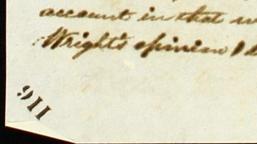 account in that
Wright's opinion I
116